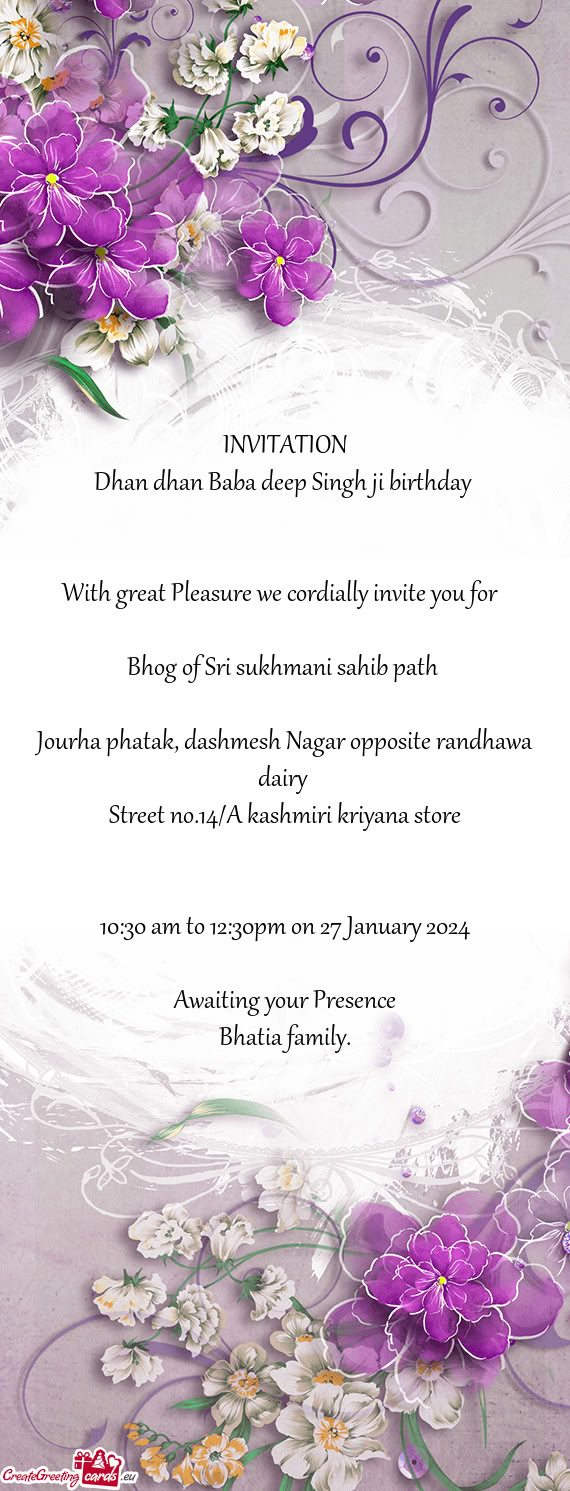 INVITATION
Dhan dhan Baba deep Singh ji birthday
With great Pleasure we cordially invite you for
Bhog of Sri sukhmani sahib path
Jourha phatak, dashmesh Nagar opposite randhawa
dairy
Street no.14/A kashmiri kriyana store
10:30 am to 12:30pm on 27 January 2024
Awaiting your Presence
Bhatia family.
CreateGreeting cards .eu